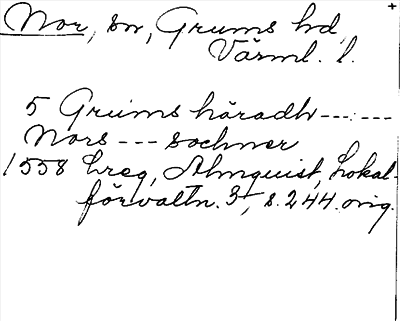 Nor, sn, Grums hd,
Värml. l.
5 Grums häradh --- ---
Nors --- sochner
1558 Lreg, Almquist, Lokal-
förvaltn. 3, s. 244. orig.